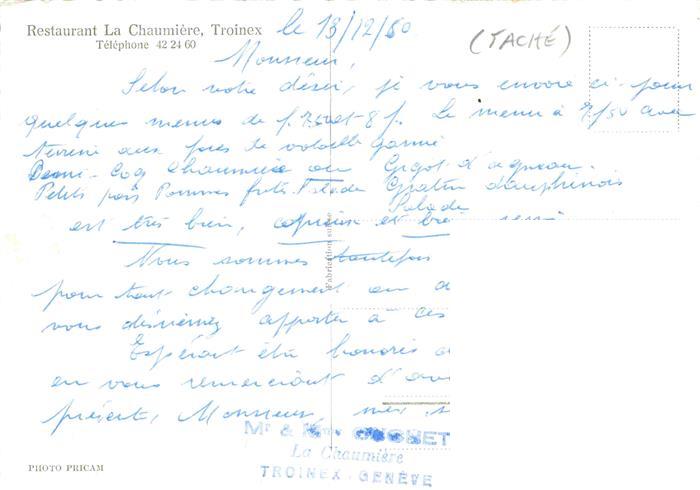 Restaurant La Chaumière, Troinex
Téléphone 42 24 60
le 13/12/60
(TACHÉ)
Monsieur,
Selon votre désir, je vous envoie ci-joint
quelques menus de f. 7 et 8 f. Le menu à 7f50 avec
terrine aux foies de volaille garnie
Demi-Coq Chaumière ou Gigot d'agneau.
Petits pois Pommes frites Salade Gratin dauphinois
Salade
est très bien, copieux et
Nous sommes toutefois
pour tout changement ou
vous désireriez apporter à ces
Espérant être honorés
en vous remerciant
présent, Monsieur,
Fabrication suisse
Mr & Mme
La Chaumière
TROINEX-GENÈVE
PHOTO PRICAM